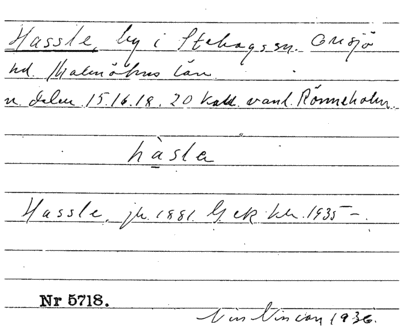 Hassle, by i Stehagssn. Onsjö
hd. Malmöhus län
n. delen 15.16.18.20 kall. vanl. Rönneholm.
hàsla
Hassle, jk. 1881. Gek bl. 1935 –.
Nr 5718.
1936.